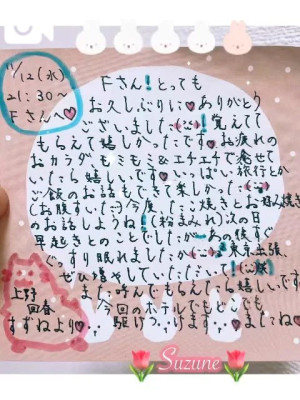 11/12(水)
21:30〜
Fさんへ♡
Fさん！とっても
お久しぶりに♡ありがとう
ございました！覚えてて
もらえて嬉しかったです♡お疲れの
おカラダ、もみもみ&エチエチで癒せて
いたら嬉しいです♡いっぱい旅行とか
ご飯のお話もできて楽しかった
(お腹すいた)今度たこ焼きとお好み焼き
のお話しようね！(粉まみれ)次の日
早起きとのことでしたがあの後すぐ
ぐっすり眠れましたか 東京出張、
ぜひ増やしていただいて！(笑)
また呼んでもらえたら嬉しいです
今回のホテルでもどこでも
駆けつけます♡またね♡
上野
回春
すずねより♡
Suzune